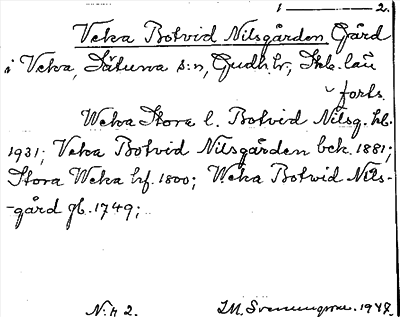 1 — 2.
Veka Botvid Nilsgården Gård
i Veka, Sätuna s:n, Gudh. hr, Skb. län
forts.
Weka Stora l. Botvid Nilsg. kb.
1931; Veka Botvid Nilsgården bck. 1881;
Stora Weka hf. 1800; Weka Botvid Nils-
-gård gb. 1749;
N:r 2. I.M. 1947.